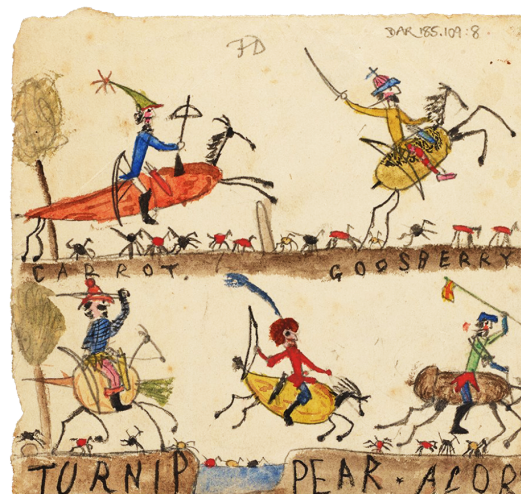 DAR 185.109:8
FD
CARROT.
GOOSBERRY
TURNIP PEAR. ACOR